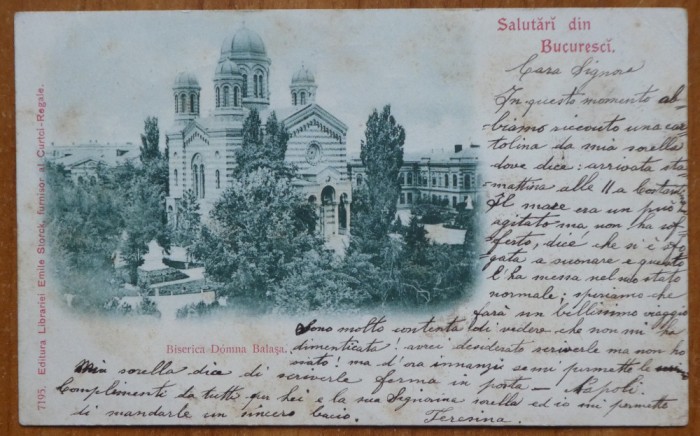 Salutări din
Bucurescĭ.
Cara Signora
In questo momento ab-
biamo ricevuto una car-
tolina da mia sorella
dove dice: arrivata sta-
mattina alle 11 a
Il mare era un pò
agitato ma non ha sof-
ferto, dice che n'è
gata a suonare e questo
l'ha messa nel suo stato
normale; speriamo che
farà un bellissimo viaggio
Sono molto contenta di vedere che non mi ha
dimenticata! avrei desiderato scriverle ma non ho
! ma d'ora innanzi se mi permette le
Biserica Dómna Balașa.
Mia sorella dice di scriverle ferma in posta — Napoli.
Complimenti da tutti per lei e la sua Signorina sorella ed io mi permetto
di mandarle un sincero bacio. Teresina.
7195. Editura Librariei Emile Storck, furnisor al Curtoi-Regale.